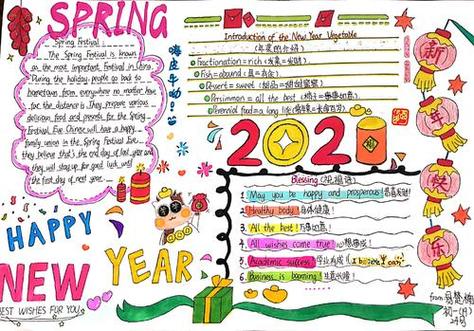 SPRING
Spring Festival
The Spring Festival is known
as the most important Festival in China.
During the holiday, people go back to
hometown from everywhere no matter how
far the distance is. They prepare various
delicious food and presents for the Spring
Festival. Eve Chinese will have a happy
family union in the Spring Festival Eve.
they believe that's the end day of last year and
they will stay up for good luck and
the first day of next year.
嗨皮牛year!
Introduction of the New Year Vegetable
(年菜的介绍)
Fractionation=rich (发菜=发财)
Fish=abound (鱼=有余)
Dessert = sweet (甜品=甜甜蜜蜜)
Persimmon = all the best
Perennial food=a long life
2021
Blessing (祝福语)
1. May you be happy and prosperous! 恭喜发财!
2. Healthy body! 身体健康!
3. All the best! 万事如意!
4. All wishes come true! 心想事成!
5. Academic success 学业有成
6. Business is booming! 生意兴隆!
新
年
快
乐
HAPPY
NEW
YEAR
BEST WISHES FOR YOU
from:
初一